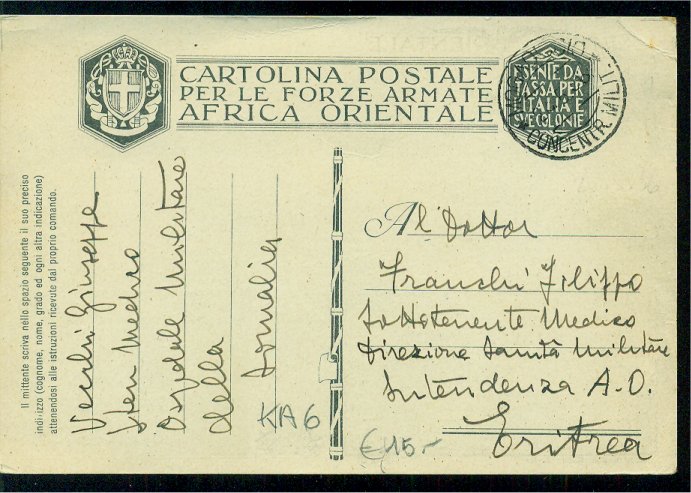 CARTOLINA POSTALE
PER LE FORZE ARMATE
AFRICA ORIENTALE
ESENTE DA
TASSA PER
ITALIA E
SVE COLONIE
CONCENTR. MILIT.
Il mittente scriva nello spazio seguente il suo preciso
indirizzo (cognome, nome, grado ed ogni altra indicazione)
attenendosi alle istruzioni ricevute dal proprio comando.
Giuseppe
Sten Medico
Ospedale Militare
della
Somalia
KA6
Al Dottor
Franchi Filippo
Sottotenente Medico
Direzione Sanità Militare
Intendenza A.O.
Eritrea
€ 15.-